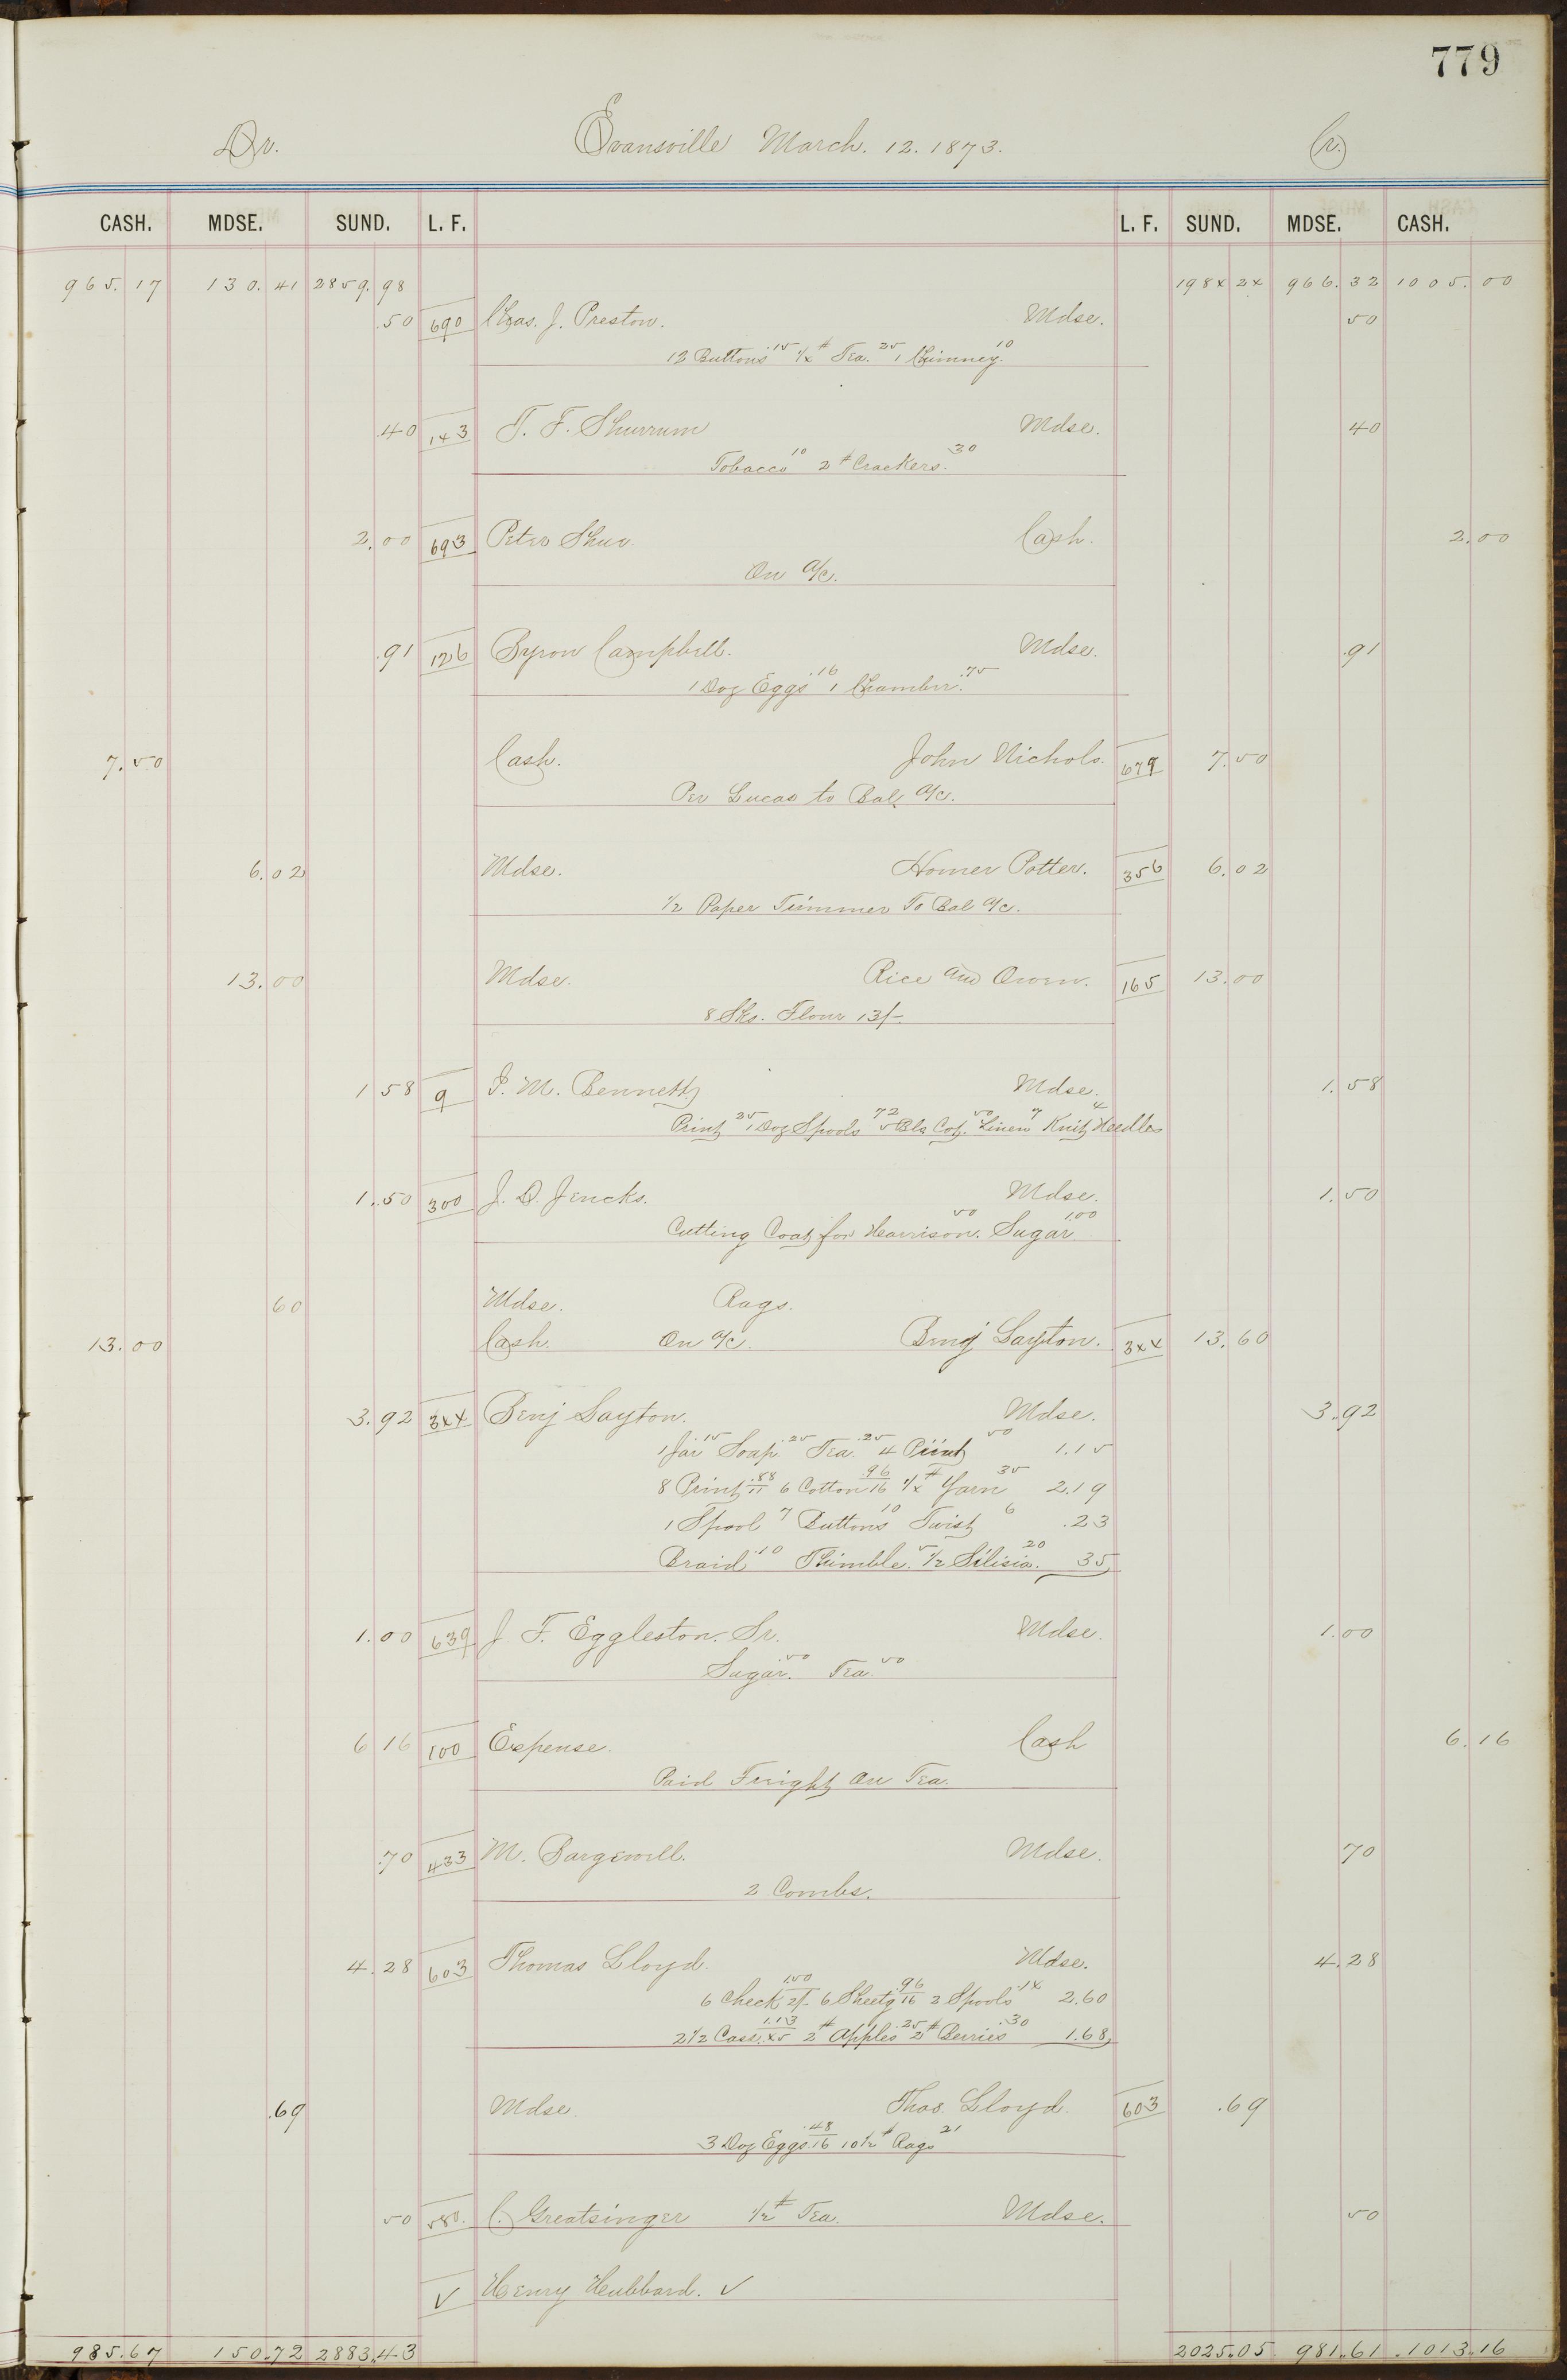 779
Dr. Evansville March. 12. 1873. Cr.
CASH. MDSE. SUND. L. F. L. F. SUND. MDSE. CASH.
965.17 130.41 2859.98 1984 24 966.32 1005.00
.50 690 Chas. J. Preston. Mdse. 50
12 Buttons .15 1/4 # Tea. 25 1 Chimney. 10
.40 143 T. F. Shurrum Mdse. 40
Tobacco 10 2 # Crackers. 30
2.00 693 Peter Shuv. Cash. 2.00
On a/c.
.91 126 Byron Campbell. Mdse. .91
1 Doz Eggs .16 1 Chamber. .75
7.50 Cash. John Nichols. 679 7.50
Per Lucas to Bal. a/c.
6.02 Mdse. Homer Potter. 356 6.02
1/2 Paper Trimmer To Bal a/c.
13.00 Mdse. Rice and Owen. 165 13.00
8 Sks. Flour 13/-
1 58 9 I. M. Bennett Mdse. 1.58
Print 25 1 Doz Spools 72 5 Bls Cot. 50 Linen 7 Knit Needles 4
1.50 300 J. D. Jencks. Mdse. 1.50
Cutting Coat for Harrison. 50 Sugar 1.00
60 Mdse. Rags.
13.00 Cash. On a/c. Benj Layton. 344 13.60
3.92 344 Benj Layton. Mdse. 3.92
1 Jar .15 Soap .25 Tea .25 4 Print 50 1.15
8 Print .88 11 6 Cotton .96 16 1/4 # Yarn 35 2.19
1 Spool 7 Buttons 10 Twist 6 .23
Braid .10 Thimble. 5 1/2 Silisia. 20 35
1.00 639 J F. Eggleston. Sr. Mdse. 1.00
Sugar. .50 Tea. 50
6 16 100 Expense. Cash 6.16
Paid Freight On Tea.
.70 433 M. Bargewell. Mdse. 70
2 Combs.
4.28 603 Thomas Lloyd. Mdse. 4.28
6 Check 1.50 2/- 6 Sheetg .96 16 2 Spools .14 2.60
2 1/2 Cass. 1.13 45 2 # Apples .25 2 # Berries .30 1.68
.69 Mdse. Thos. Lloyd. 603 .69
3 Doz Eggs .48 16 10 1/2 # Rags 21
50 580. C. Greatsinger 1/2 # Tea. Mdse. 50
✓ Henry Hubbard. ✓
985.67 150.72 2883.43 2025.05 981.61 1013.16